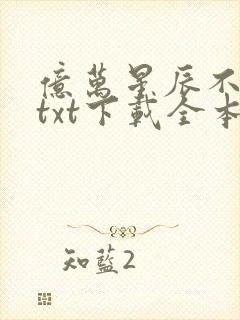 億萬星辰不
txt下載全本
知藍2